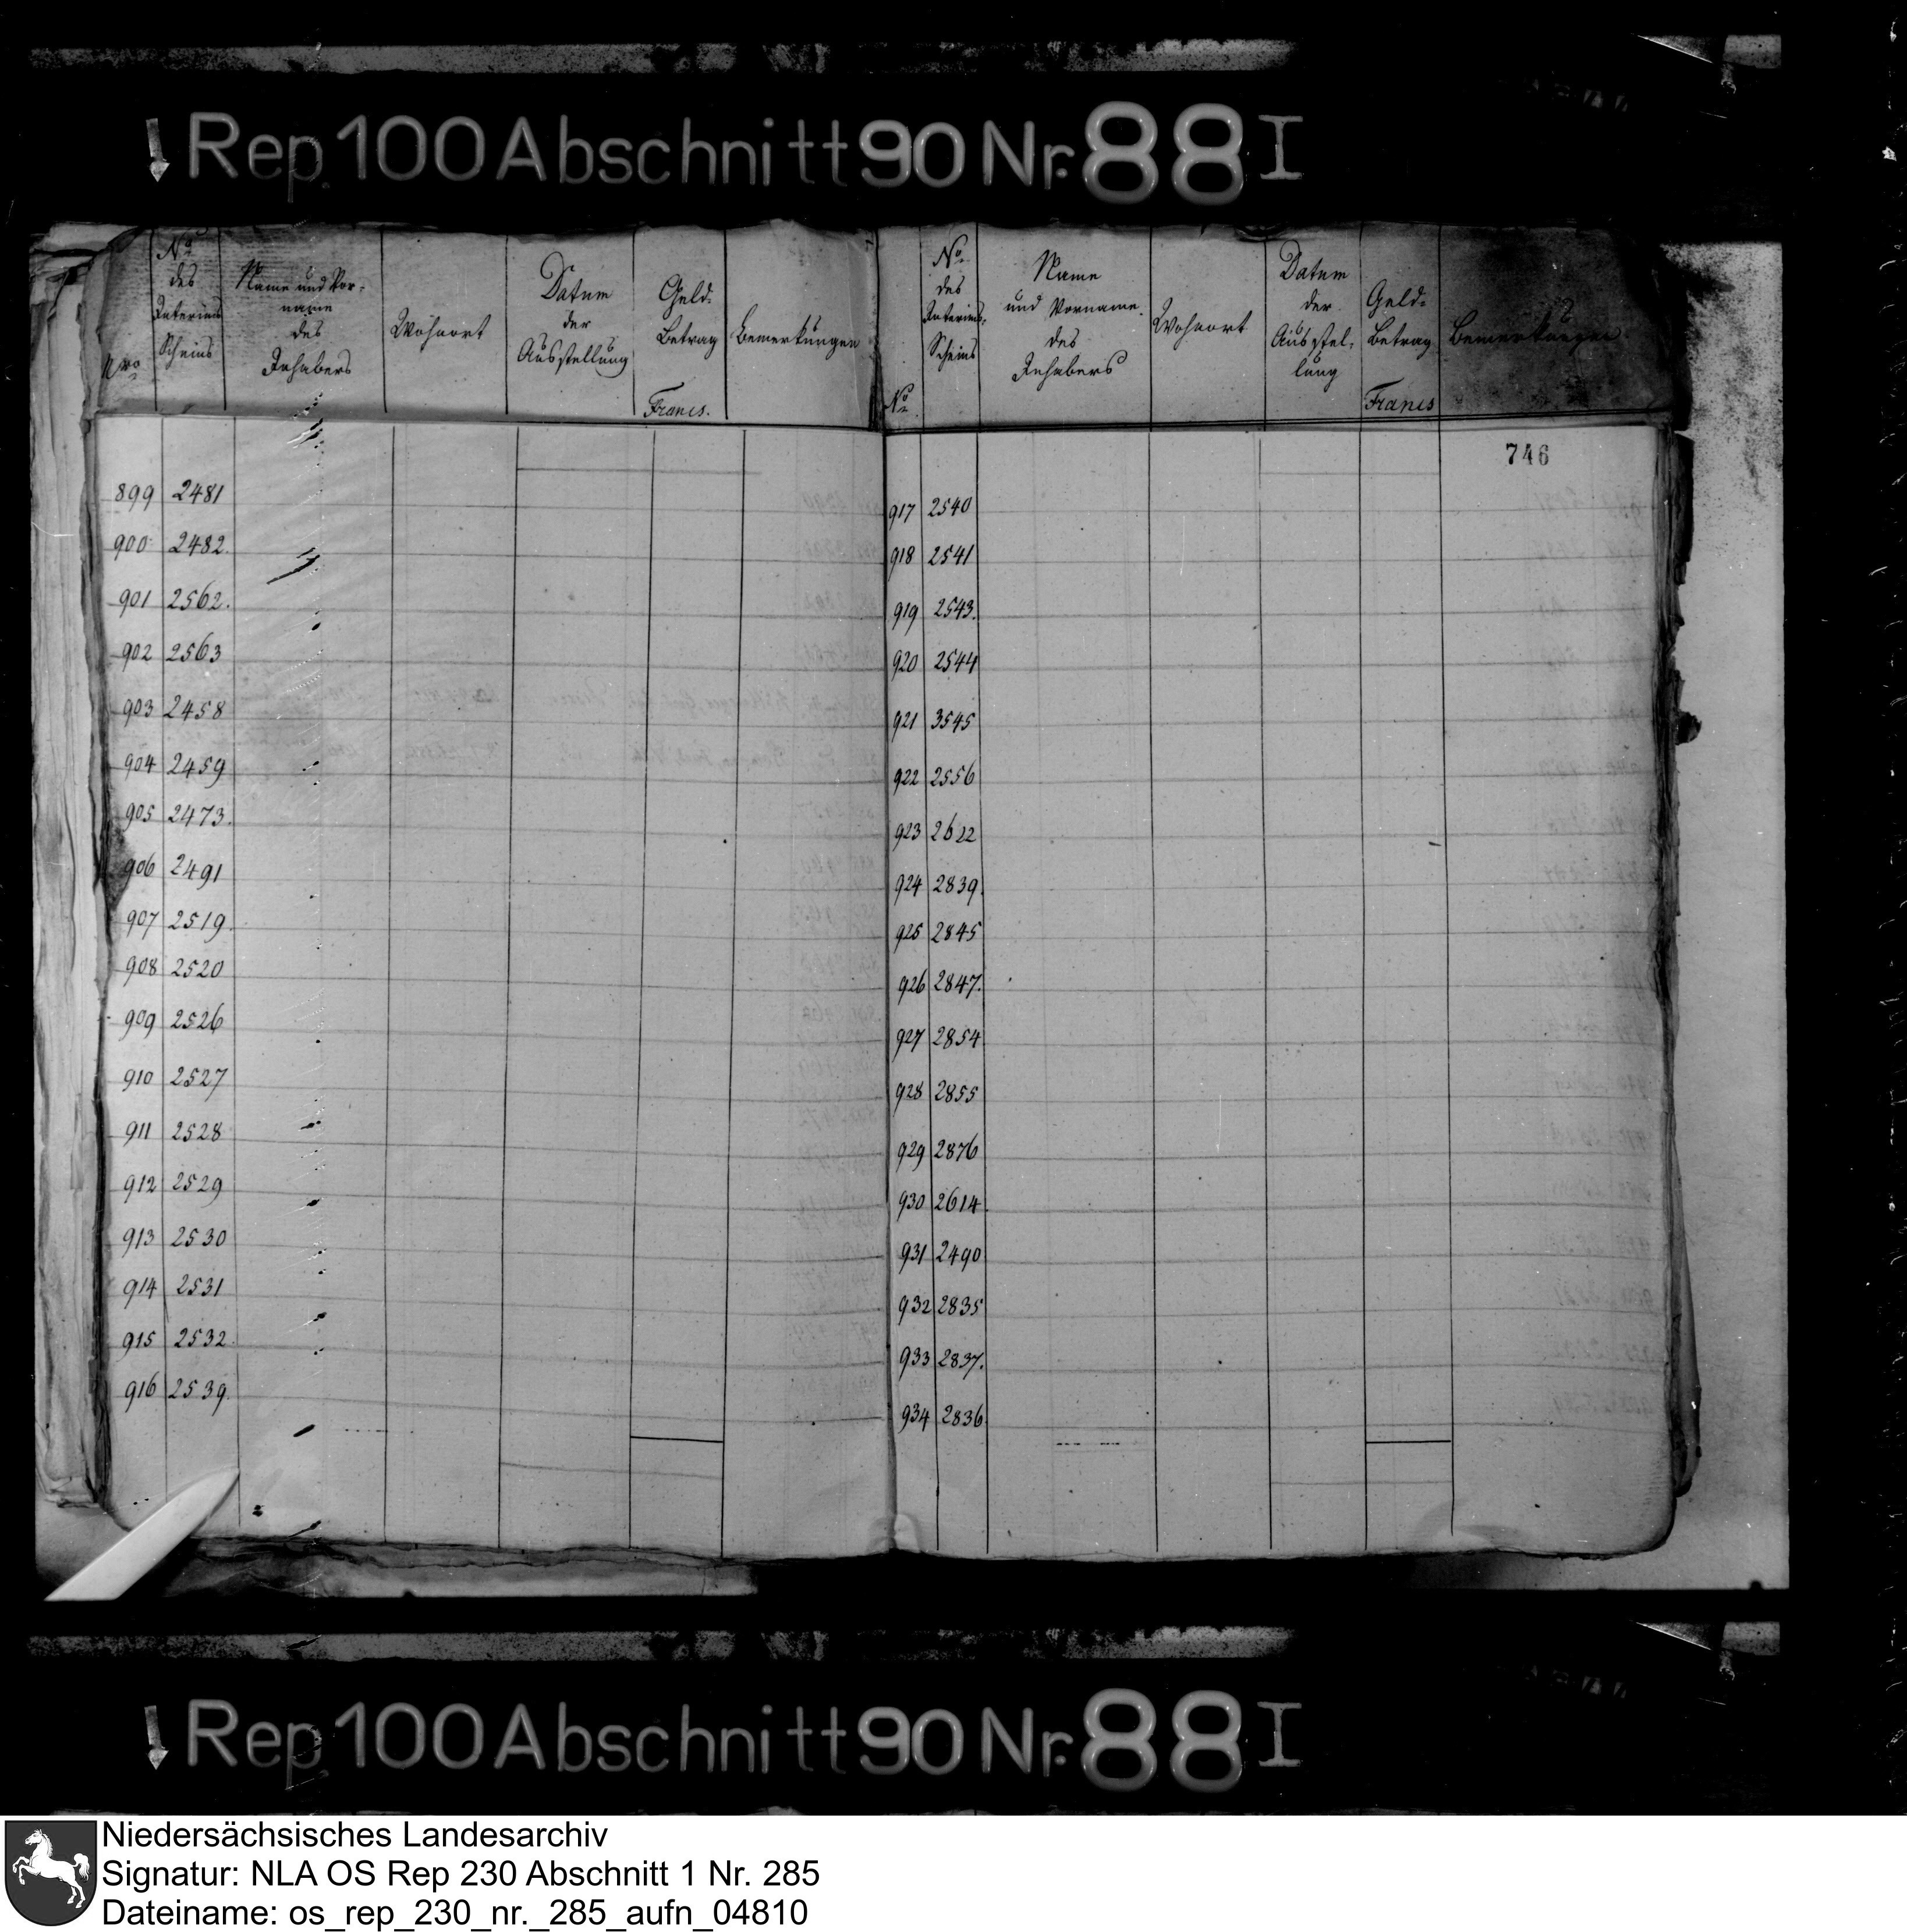 Rep. 100 Abschnitt 90 Nr. 88 I
No des Interims Scheins
Name und Vorname des Inhabers
Wohnort
Datum der Ausstellung
Geld-Betrag
Francs.
Bemerkungen
Nro
899 2481
900 2482.
901 2562.
902 2563
903 2458
904 2459
905 2473.
906 2491
907 2519.
908 2520
909 2526
910 2527
911 2528
912 2529
913 2530
914 2531
915 2532.
916 2539.
No
No des Interims-Scheins
Name und Vorname. des Inhabers
Wohnort
Datum der Ausstel-lung
Geld-Betrag
Francs
Bemerkungen
746
917 2540
918 2541
919 2543.
920 2544
921 3545
922 2556
923 2622
924 2839.
925 2845
926 2847.
927 2854
928 2855
929 2876
930 2614.
931 2490
932 2835
933 2837.
934 2836
Rep. 100 Abschnitt 90 Nr. 88 I
Niedersächsisches Landesarchiv
Signatur: NLA OS Rep 230 Abschnitt 1 Nr. 285
Dateiname: os_rep_230_nr._285_aufn_04810